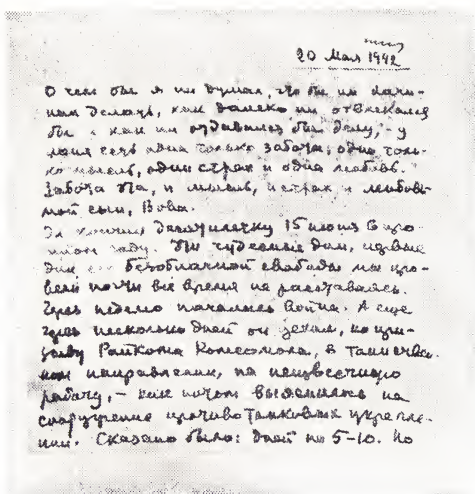 20 Мая 1942
О чем бы я ни думал, что бы ни начи-
нал делать, как далеко ни отвлекался
бы и как ни отдавался бы делу, – у
меня есть одна только забота, одна толь-
ко мысль, один страх и одна любовь.
Забота та, и мысль, и страх и любовь
мой сын, Вова.
Он кончил десятилетку 15 июня в про-
шлом году. Те чудесные дни, первые
дни его безоблачной свободы мы про-
вели почти всё время не расставаясь.
Через неделю началась война. А еще
через несколько дней он уехал, по при-
зыву Райкома Комсомола, в таинствен-
ном направлении, на неизвестную
работу, – как потом выяснилось на
сооружение противотанковых укрепле-
ний. Сказано было: дней на 5–10. Но